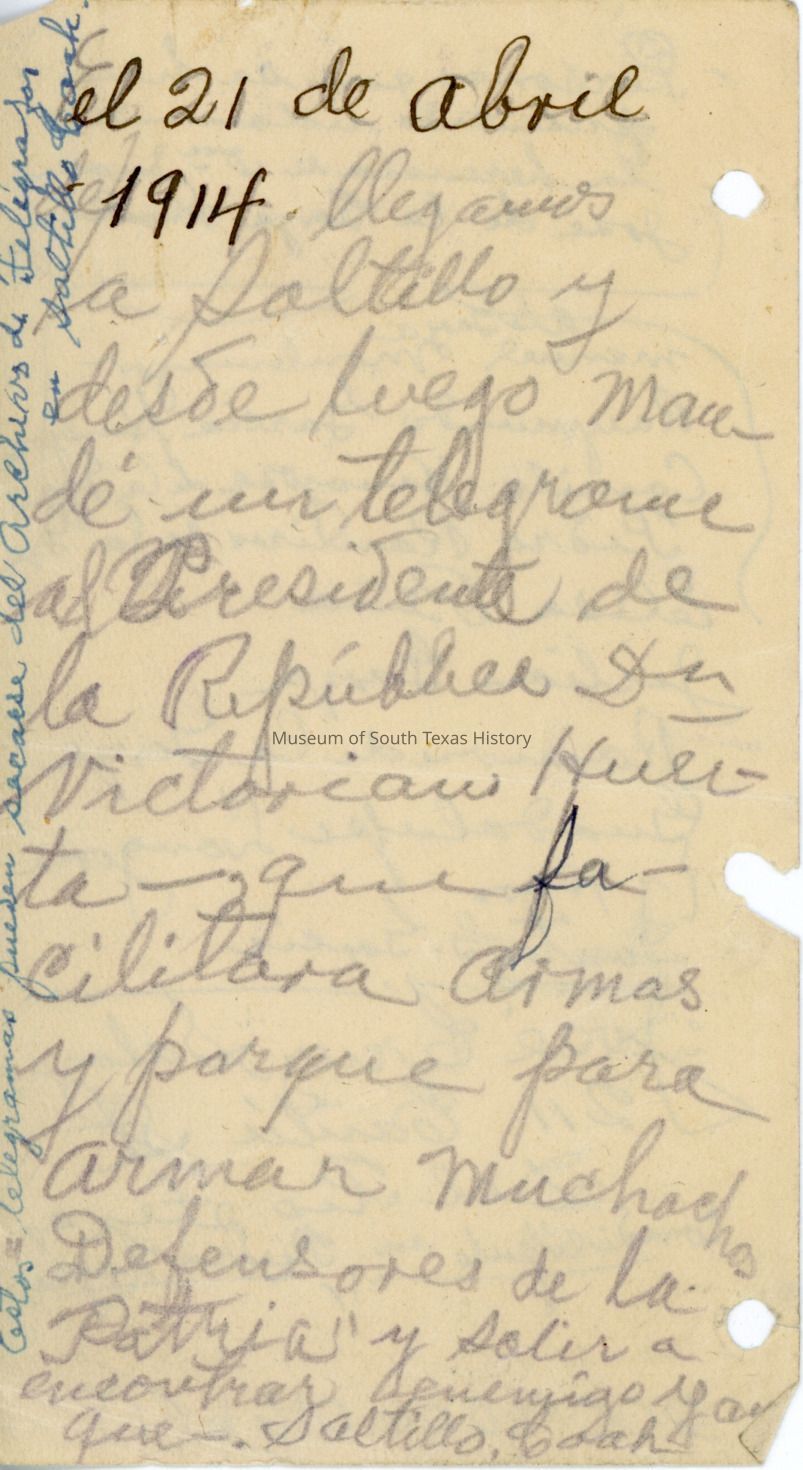 el 21 de abril
1914. llegamos
a Saltillo y
desde luego man-
dé un telegrama
al Presidente de
la República Dn
Victoriano Huer-
ta — que fa-
cilitara armas
y parque para
armar muchachos
Defensores de la
Patria" y salir a
encontrar enemigo y an
que —. Saltillo, Coah
Estos = telegramas pueden sacarse del Archivo de Telégrafos
en Saltillo Coah.
Museum of South Texas History